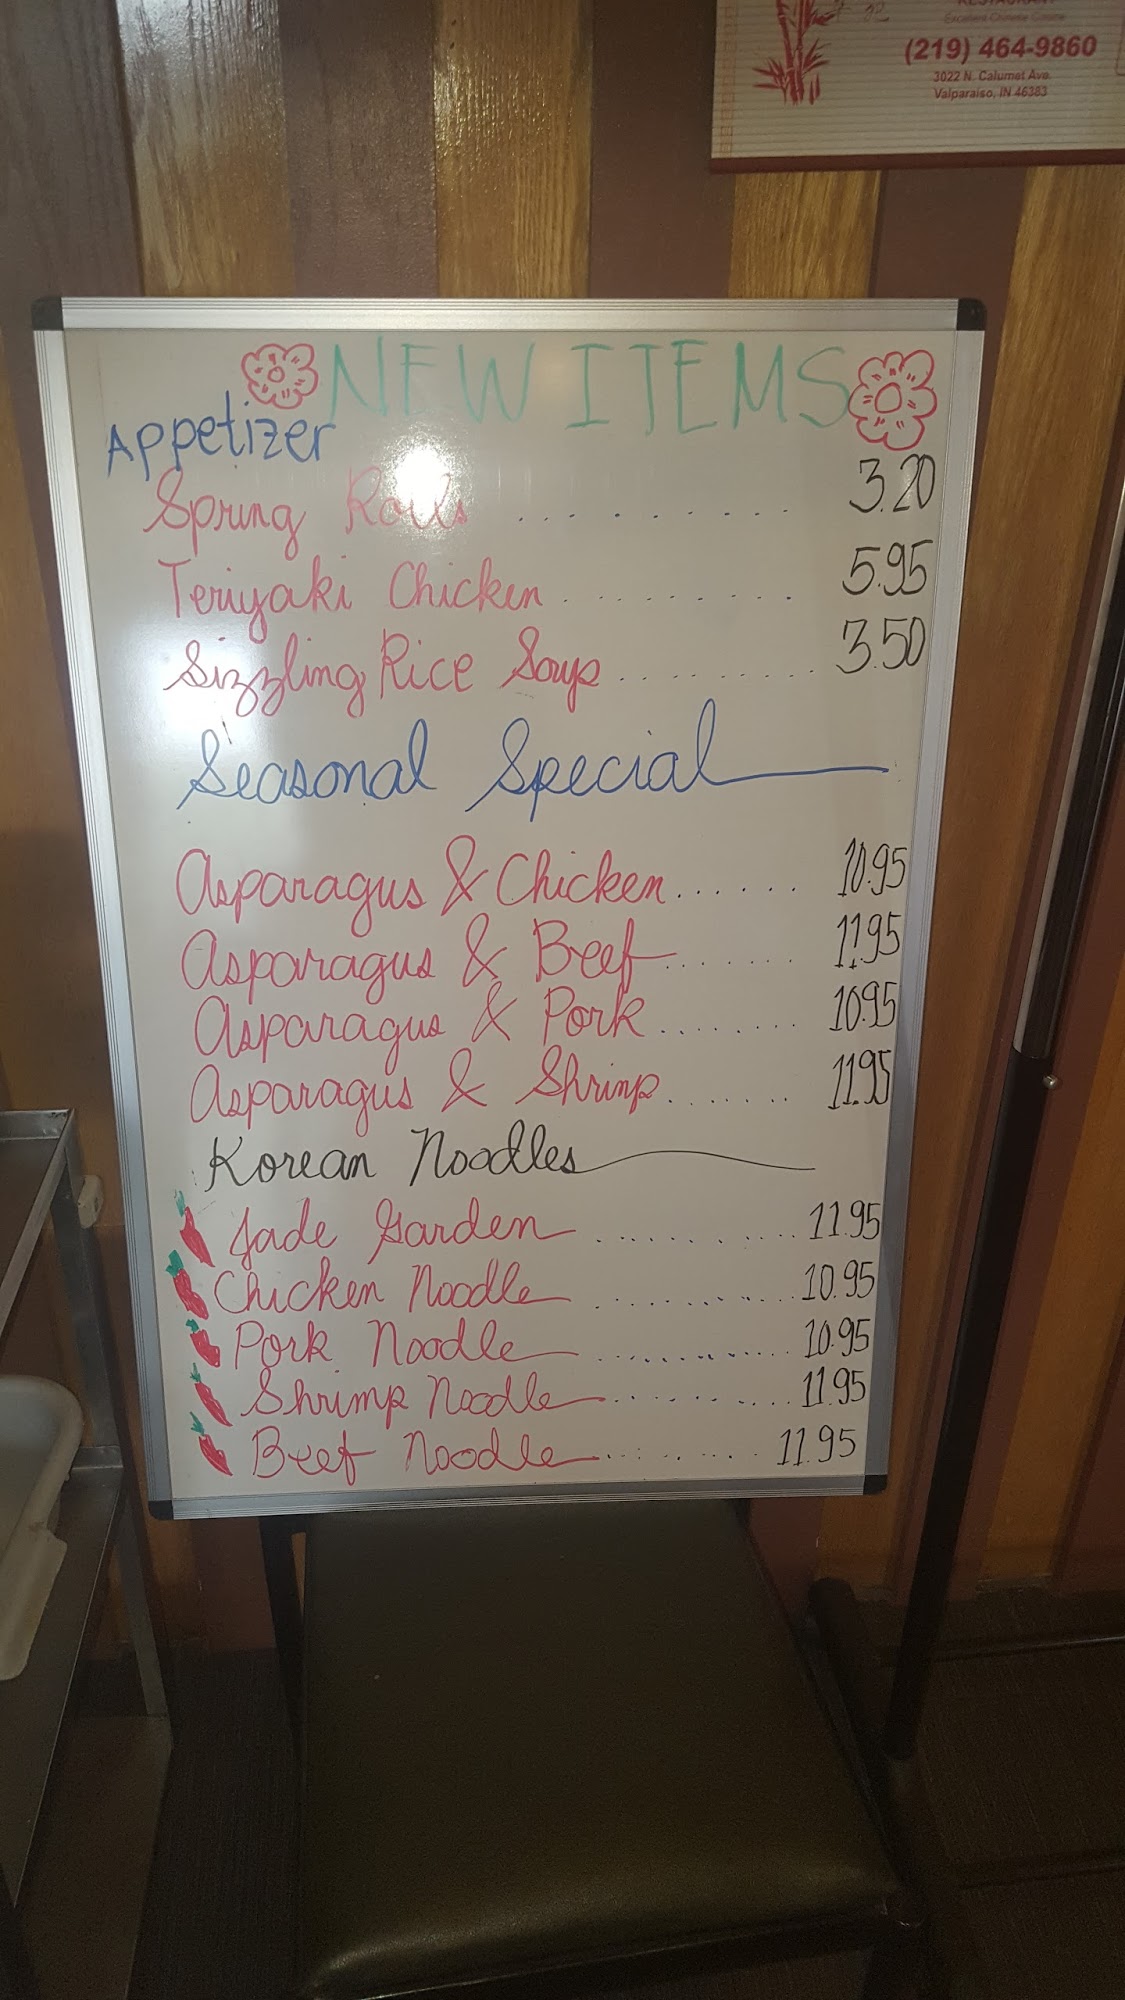 RESTAURANT
Excellent Chinese Cuisine
(219) 464-9860
3022 N. Calumet Ave.
Valparaiso, IN 46383
NEW ITEMS
Appetizer
Spring Rolls .......... 3.20
Teriyaki Chicken ......... 5.95
Sizzling Rice Soup ......... 3.50
Seasonal Special
Asparagus & Chicken ...... 10.95
Asparagus & Beef ....... 11.95
Asparagus & Pork ........ 10.95
Asparagus & Shrimp ....... 11.95
Korean Noodles
Jade Garden ........... 11.95
Chicken Noodle ........... 10.95
Pork Noodle ........... 10.95
Shrimp Noodle ......... 11.95
Beef Noodle ......... 11.95